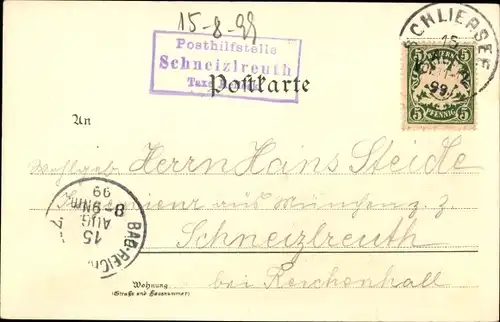 15-8-99
Posthilfstelle
Schneizlreuth
Taxe
Postkarte
SCHLIERSEE
15
99
BAYERN
5 5
5 5
PFENNIG
An
Herrn Hans Steidle
Ingenieur aus München z. Z.
Schneizlreuth
bei Reichenhall
BAD-REICH
15
AUG
8-9NM
99
Wohnung
(Straße und Hausnummer)